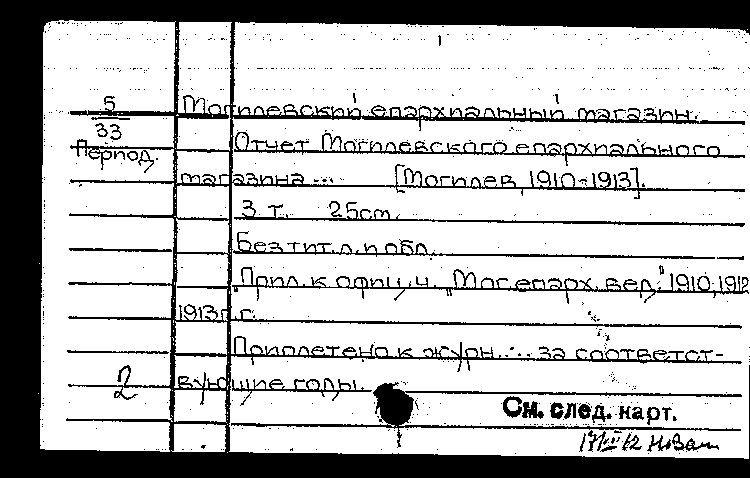 5
33
Период.
Могилевский епархиальный магазин.
Отчет Могилевского епархиального
магазина ... [Могилев, 1910-1913].
3 т. 25см.
Без тит.л. и обл.
"Прил. к офиц. ч. "Мог. епарх. вед." 1910, 1912
1913 г.г.
Приплетено к журн. ... за соответст-
вующие годы.
2
См. след. карт.